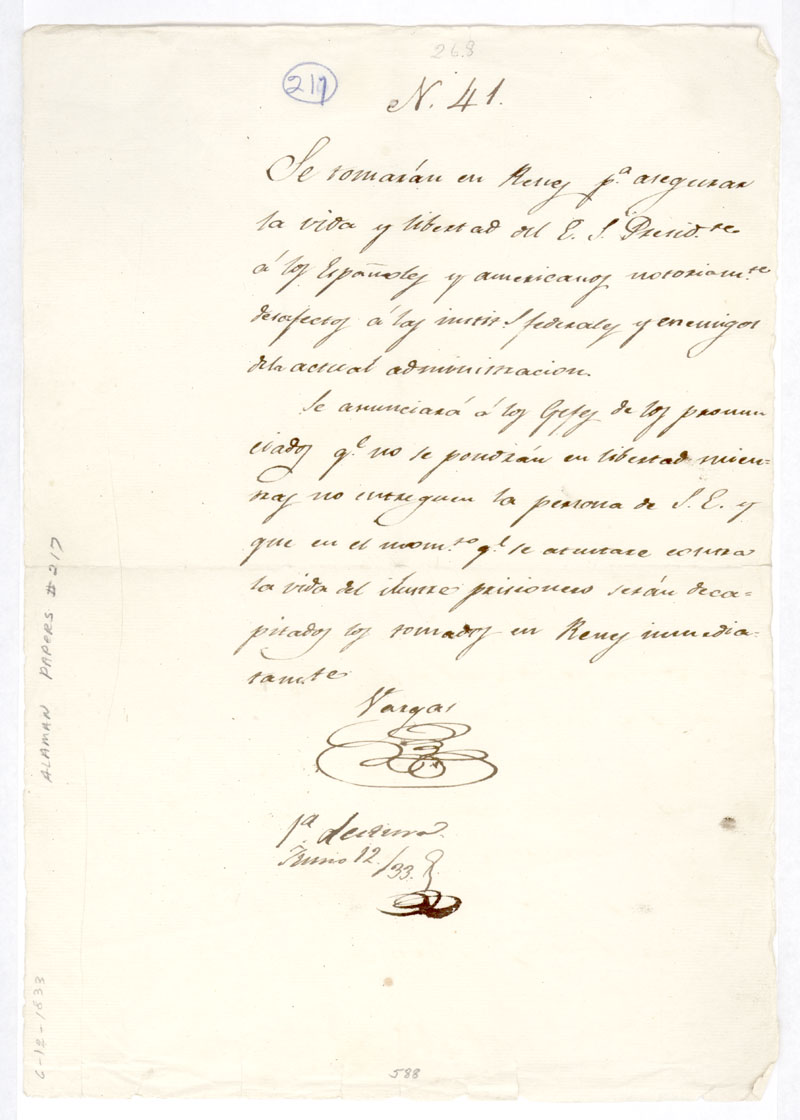 268
217
N. 41.
Se tomarán en Reney p.ª asegurar
la vida y libertad del E. S. Presid.te
á los Españoles y americanos notoriam.te
desafectos á las instit.s federales y enemigos
de la actual administracion.
Se anunciará á los Gefes de los pronun
ciados q.e no se pondrán en libertad mien-
tras no entreguen la persona de S. E. y
que en el mom.to q.e se atentare contra
la vida del ilustre prisionero serán deca-
pitados los tomados en Reney inmedia-
tam.te
Vargas
1.ª lectura
Junio 12/33.
ALAMAN PAPERS # 217
6-12-1833
588